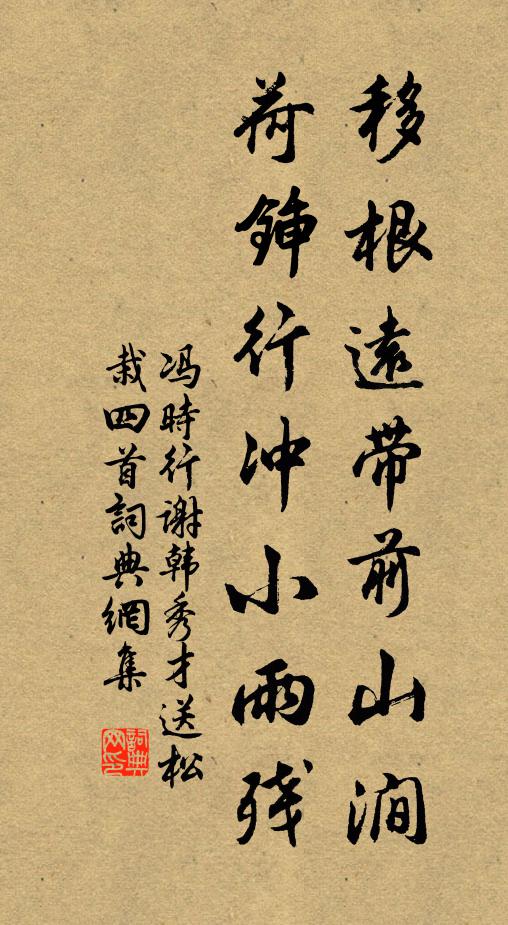 移根遠带前山澗
荷鍤行冲小雨残
冯時行谢韩秀才送松
栽四首詞典網集
詞典网印